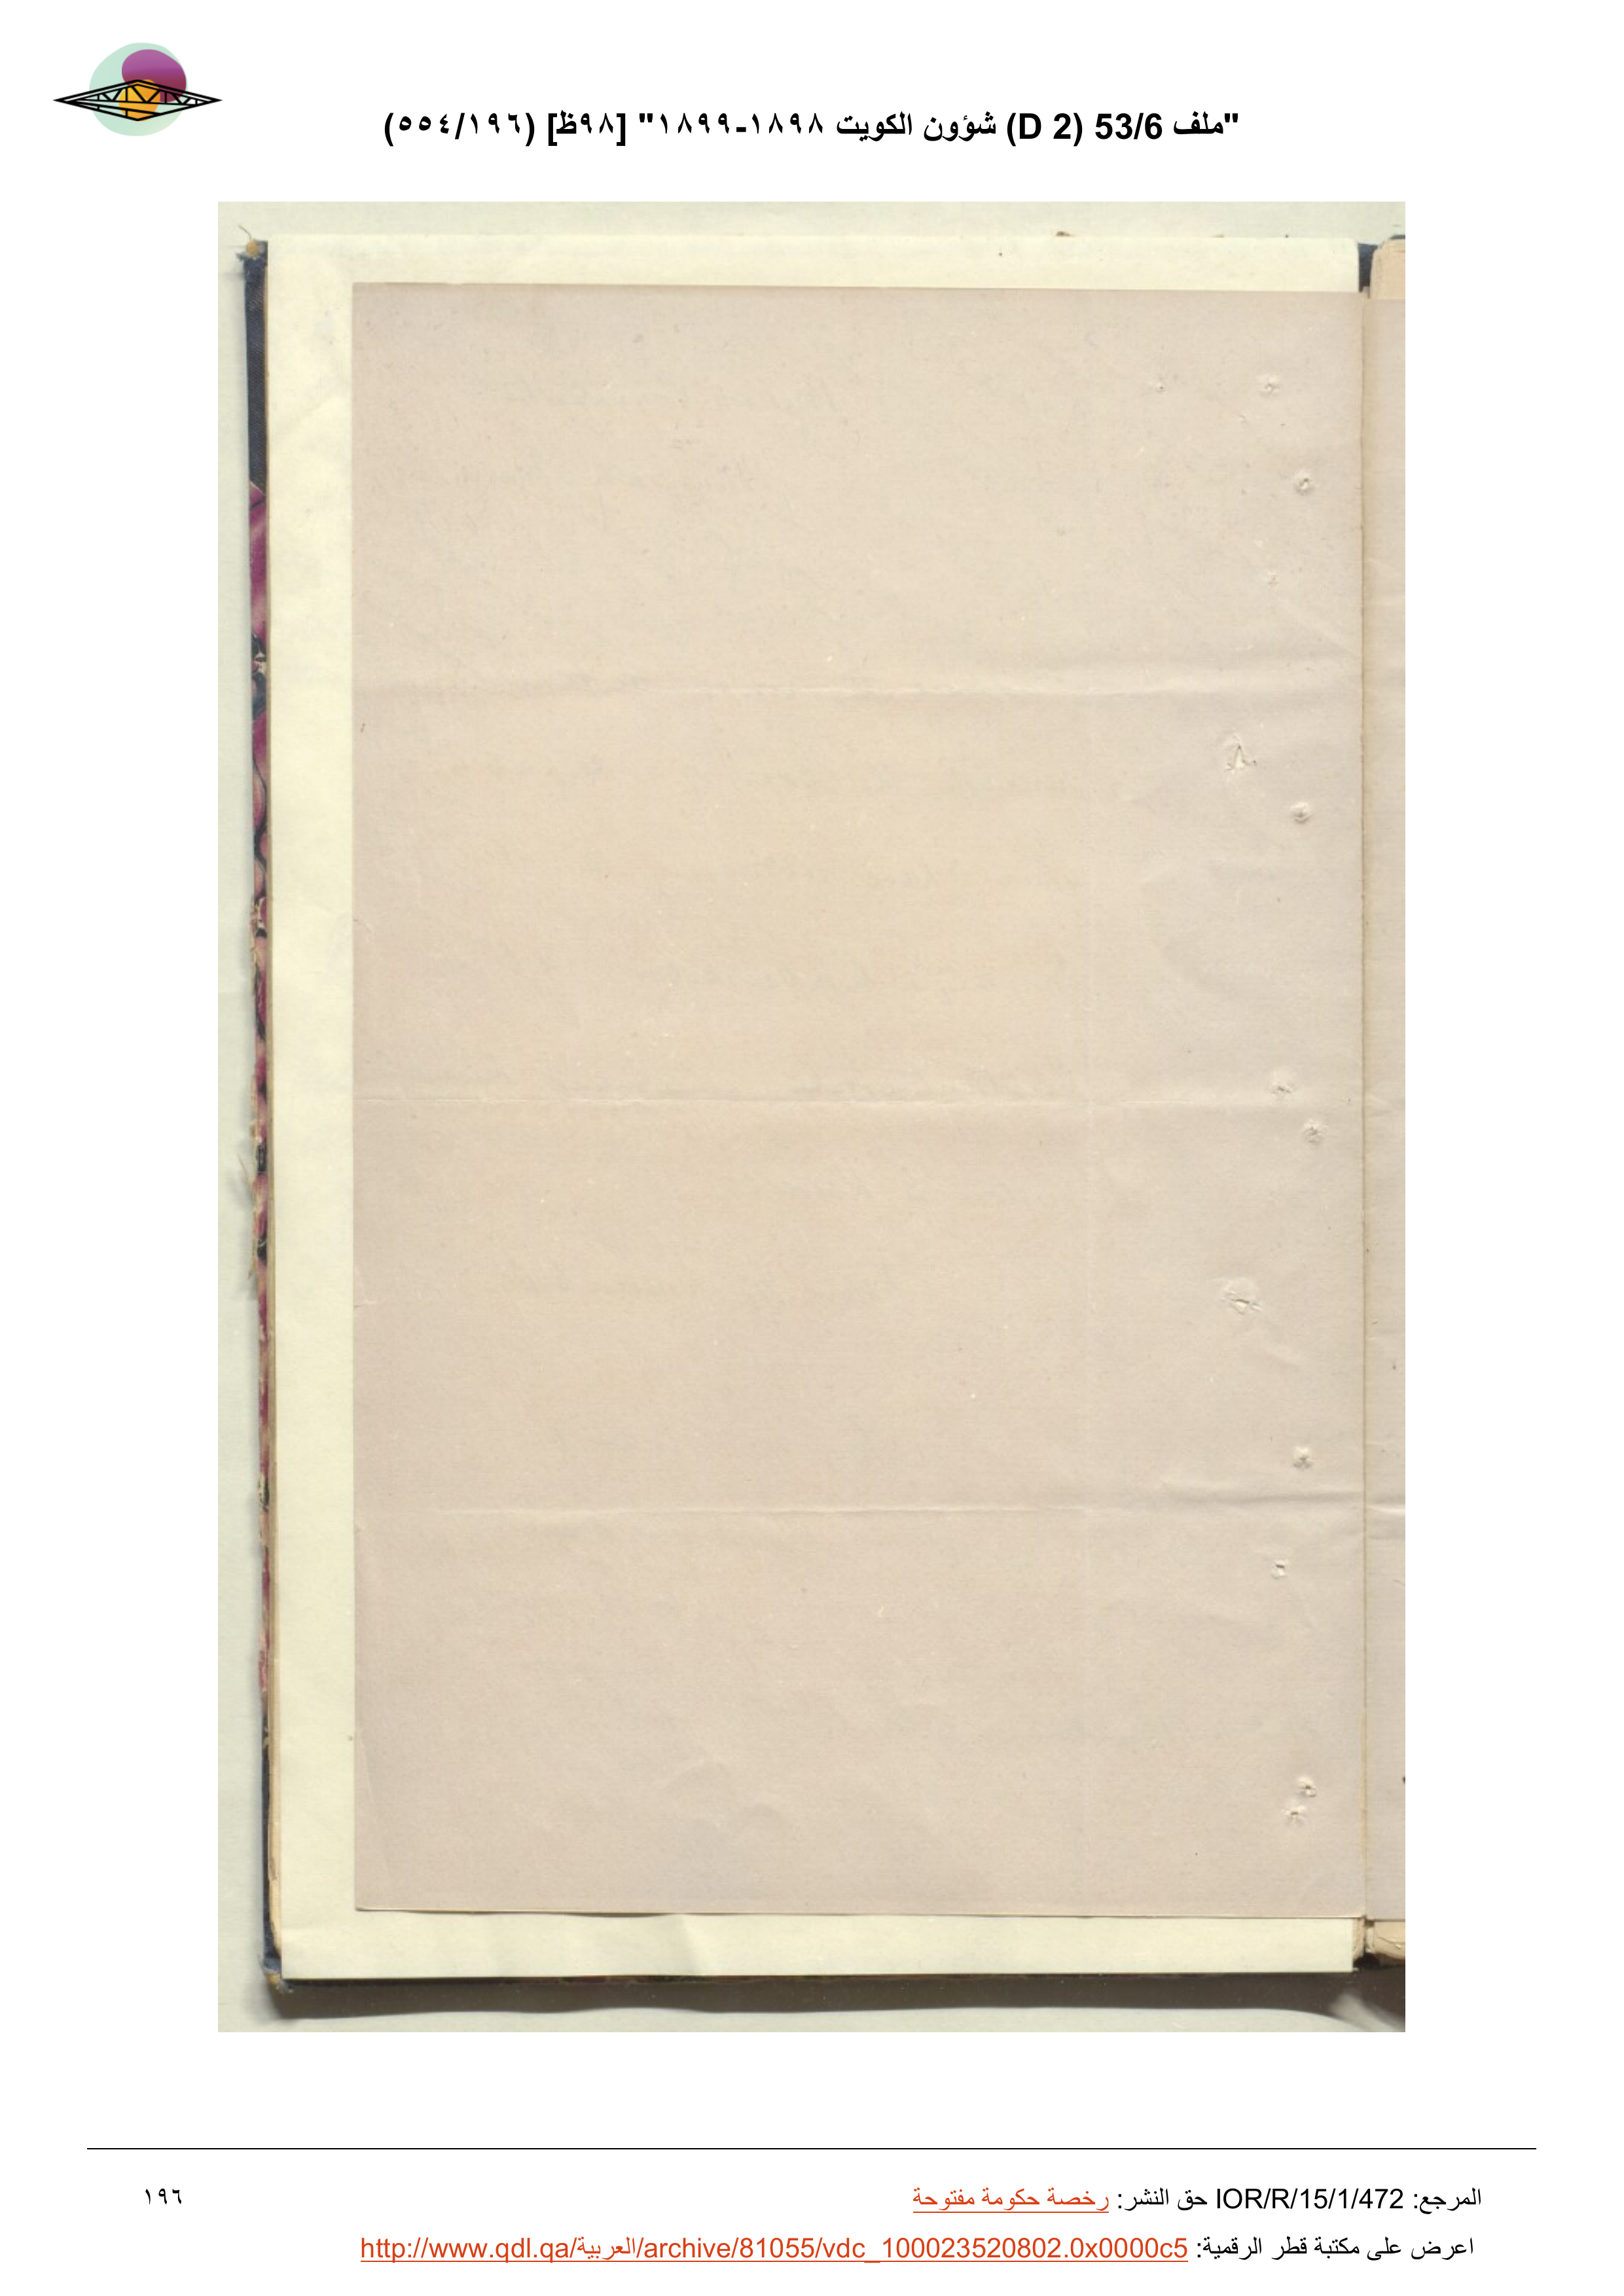 "ملف 53/6 (D 2) شؤون الكويت ١٨٩٨-١٨٩٩" [٩٨ظ] (٥٥٤/١٩٦)
المرجع: IOR/R/15/1/472 حق النشر: رخصة حكومة مفتوحة
١٩٦
اعرض على مكتبة قطر الرقمية: http://www.qdl.qa/العربية/archive/81055/vdc_100023520802.0x0000c5